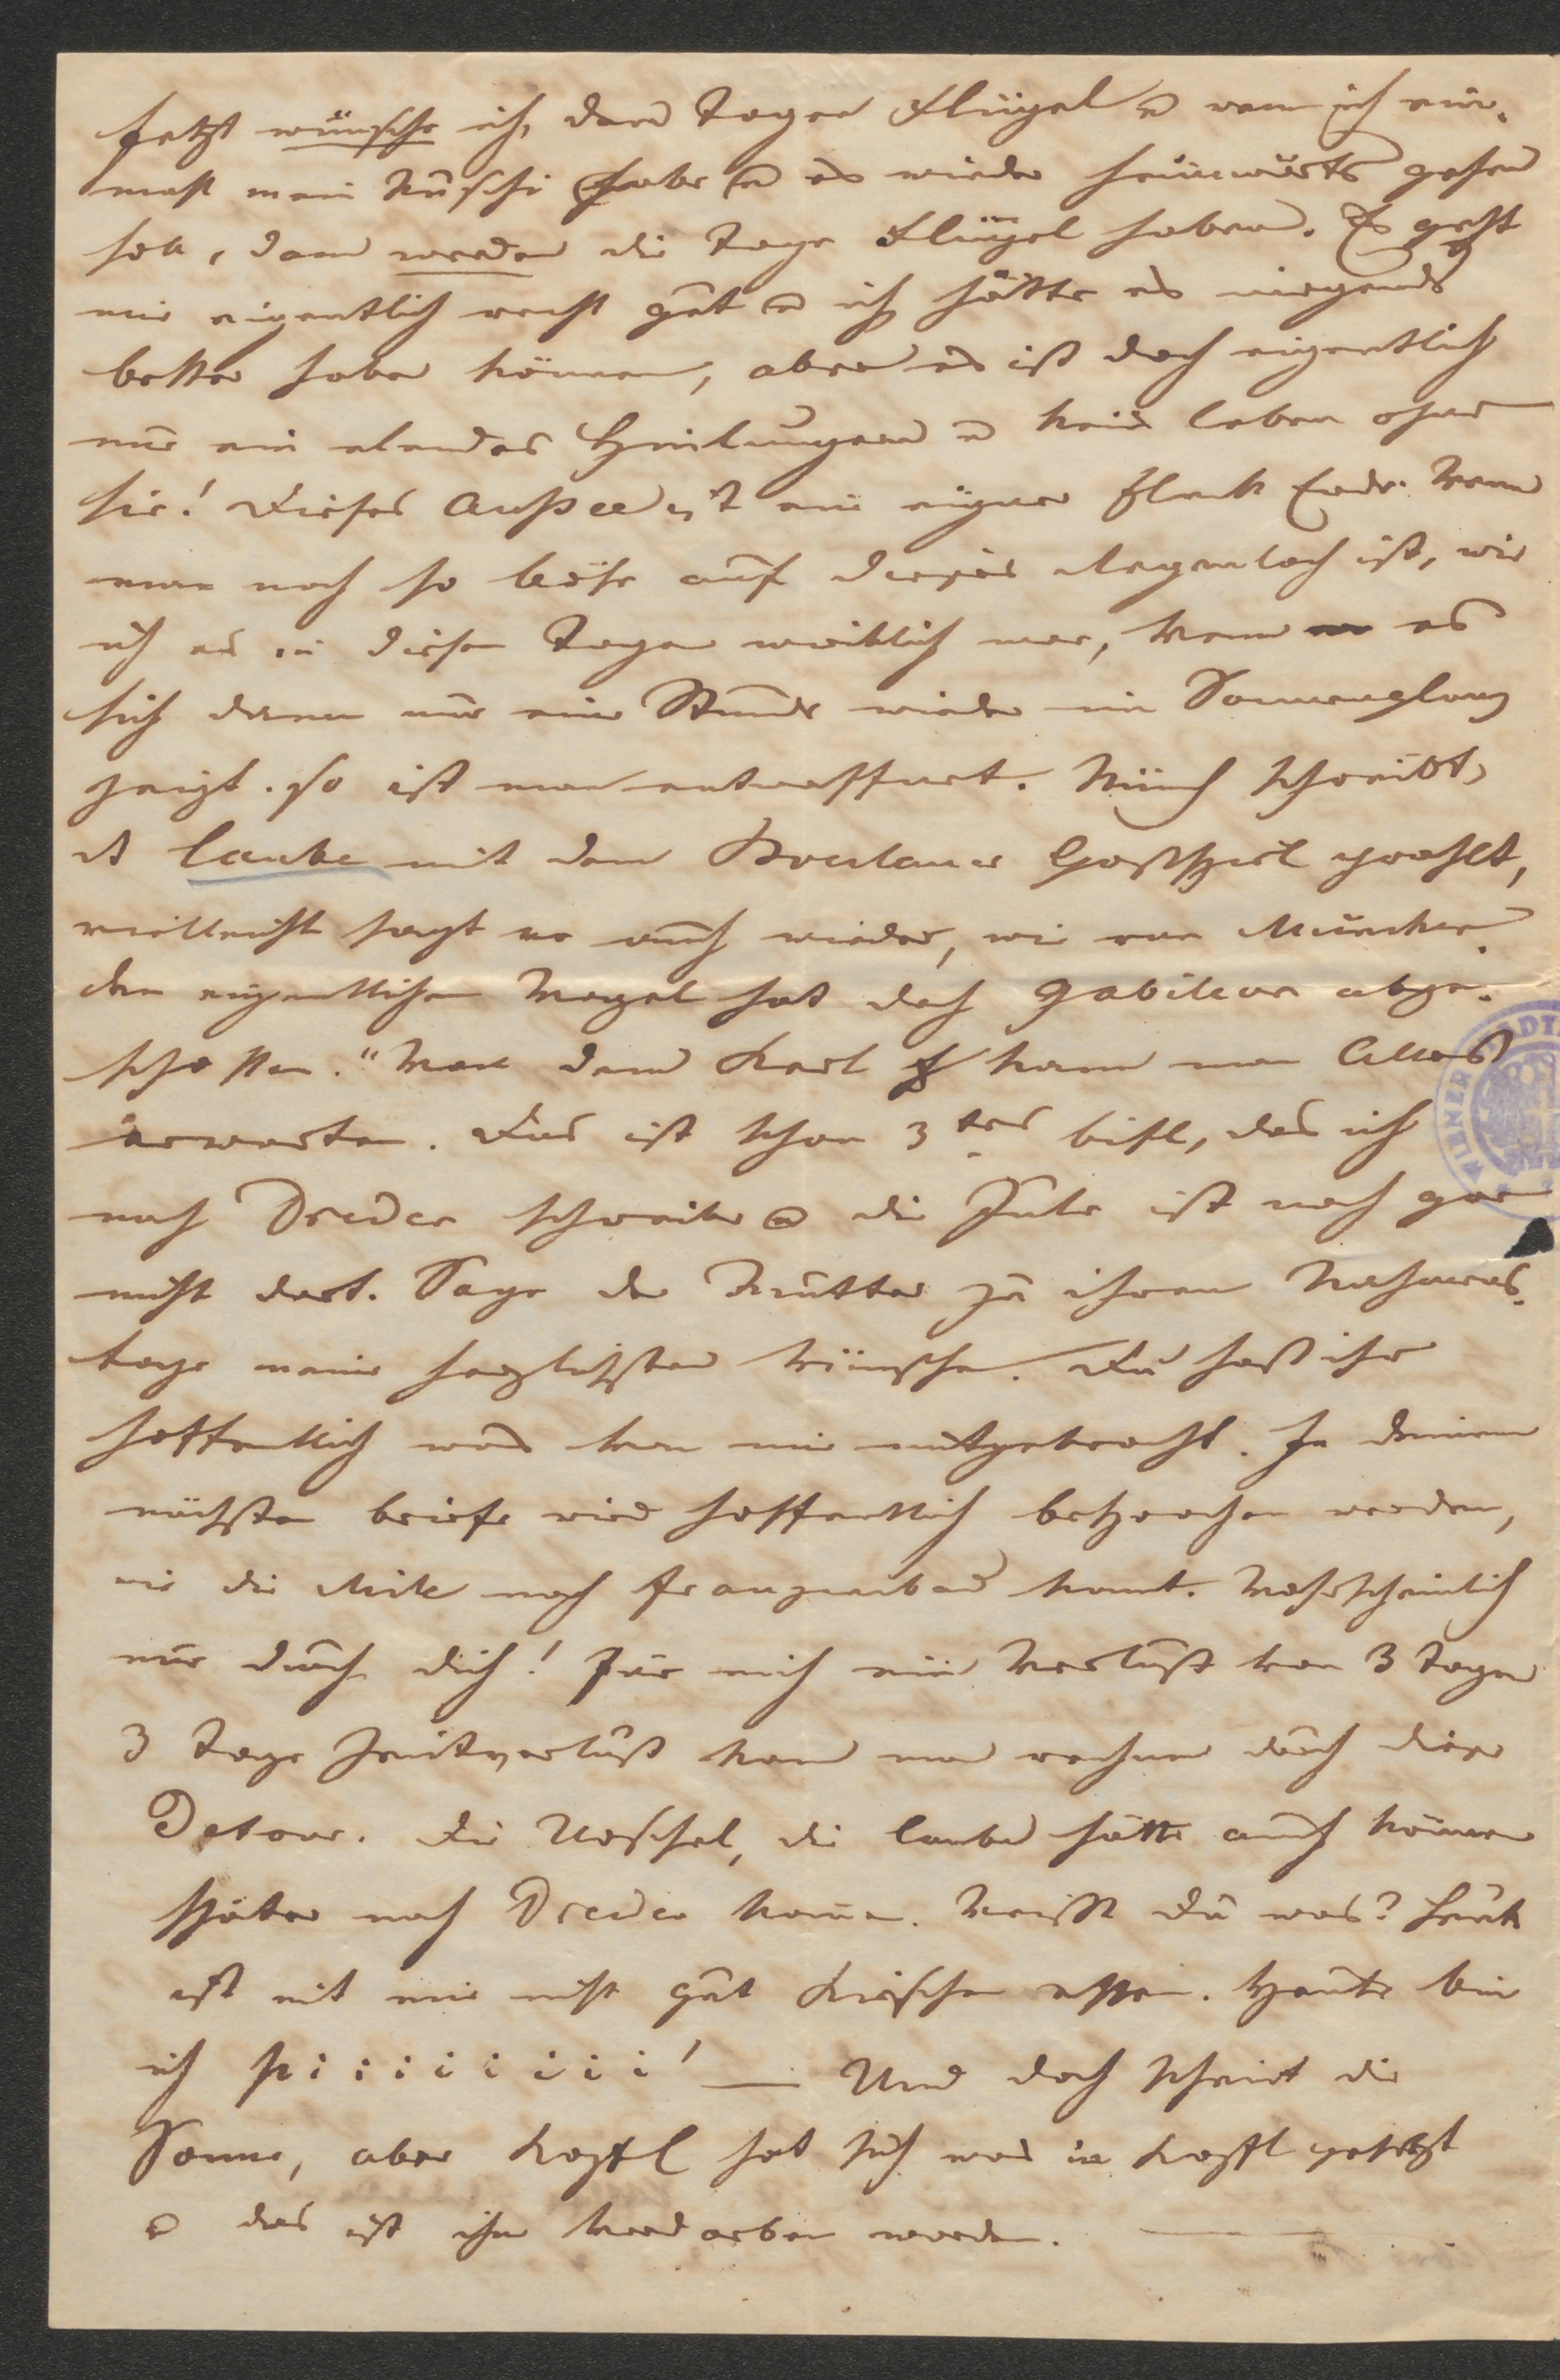 Jetzt wünsche ich, den Tagen Flügel u wenn ich ein-
mal mein Nuschi habe u es wieder heimwärts gehen
soll, dann werden die Tage Flügel haben. Es geht
mir eigentlich recht gut u ich hätte es nirgends
besser haben können, aber es ist doch eigentlich
nur ein elendes Hinlungern u kein Leben ohne
sie! Dieses Aussee ist ein eigner Fleck Erde. Wenn
man noch so böse auf dieses Regenloch ist, wie
ich es in diesen Tagen wirklich war, wenn es
sich dann nur eine Stunde wieder im Sonnenglanz
zeigt. so ist man entwaffnet. Münch schreibt,
daß Laube mit dem Breslauer Gastspiel prahlt,
vielleicht sagt er auch wieder, wie von München
den eigentlichen Vogel hat doch Gabillon abge-
schossen." Von dem Kerl kann man Alles
erwarten. Das ist schon 3tes Briefl, das ich
nach Dresden schreibe u die Gute ist noch gar
nicht dort. Sage der Mutter zu ihrem Nahmens-
tage meine herzlichsten Wünsche. Du hast ihr
hoffentlich was von mir mitgebracht. In deinem
nächsten Briefe wird hoffentlich besprochen werden,
wie die Mile nach Franzensbad kommt. Wahrscheinlich
nur durch dich! Für mich ein Verlust von 3 Tagen
3 Tage Zeitverlust kann man rechnen durch diese
Detour. Die Uschel, die Laube hätte auch können
später nach Dresden kommen. Weißt Du was? Heute
ist mit mir nicht gut Kirschen essen. Heute bin
ich hiiiiiiii! — Und doch scheint die
Sonne, aber Kopfl hat sich was in Kopfl gesetzt
u das ist ihm verdorben worden. —
WIENER STADT